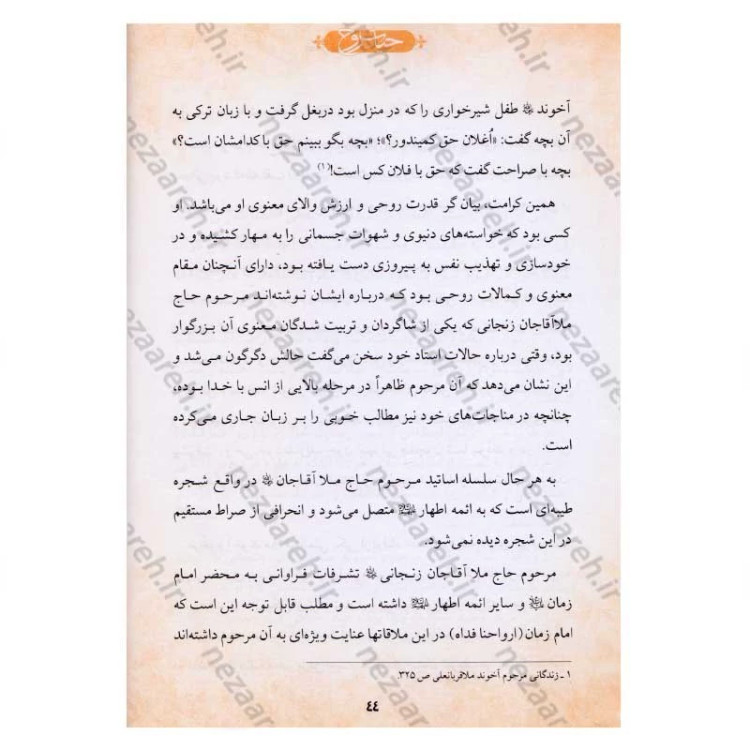 حیات روح
آخوند طفل شیرخواری را که در منزل بود دربغل گرفت و با زبان ترکی به
آن بچه گفت: «اُغلان حق کمیندور؟»؛ «بچه بگو ببینم حق با کدامشان است؟»
بچه با صراحت گفت که حق با فلان کس است!(۱)
همین کرامت، بیان گر قدرت روحی و ارزش والای معنوی او می‌باشد. او
کسی بود که خواسته‌های دنیوی و شهوات جسمانی را به مهار کشیده و در
خودسازی و تهذیب نفس به پیروزی دست یافته بود، دارای آنچنان مقام
معنوی و کمالات روحی بود که درباره ایشان نوشته‌اند مرحوم حاج
ملاآقاجان زنجانی که یکی از شاگردان و تربیت شدگان معنوی آن بزرگوار
بود، وقتی درباره حالات استاد خود سخن می‌گفت حالش دگرگون می‌شد و
این نشان می‌دهد که آن مرحوم ظاهراً در مرحله بالایی از انس با خدا بوده،
چنانچه در مناجات‌های خود نیز مطالب خوبی را بر زبان جاری می‌کرده
است.
به هر حال سلسله اساتید مرحوم حاج ملا آقاجان در واقع شجره
طیبه‌ای است که به ائمه اطهار متصل می‌شود و انحرافی از صراط مستقیم
در این شجره دیده نمی‌شود.
مرحوم حاج ملا آقاجان زنجانی تشرفات فراوانی به محضر امام
زمان و سایر ائمه اطهار داشته است و مطلب قابل توجه این است که
امام زمان (ارواحنا فداه) در این ملاقاتها عنایت ویژه‌ای به آن مرحوم داشته‌اند
۱ ـ زندگانی مرحوم آخوند ملاقربانعلی ص ۳۲۵.
٤٤
nezaareh.ir